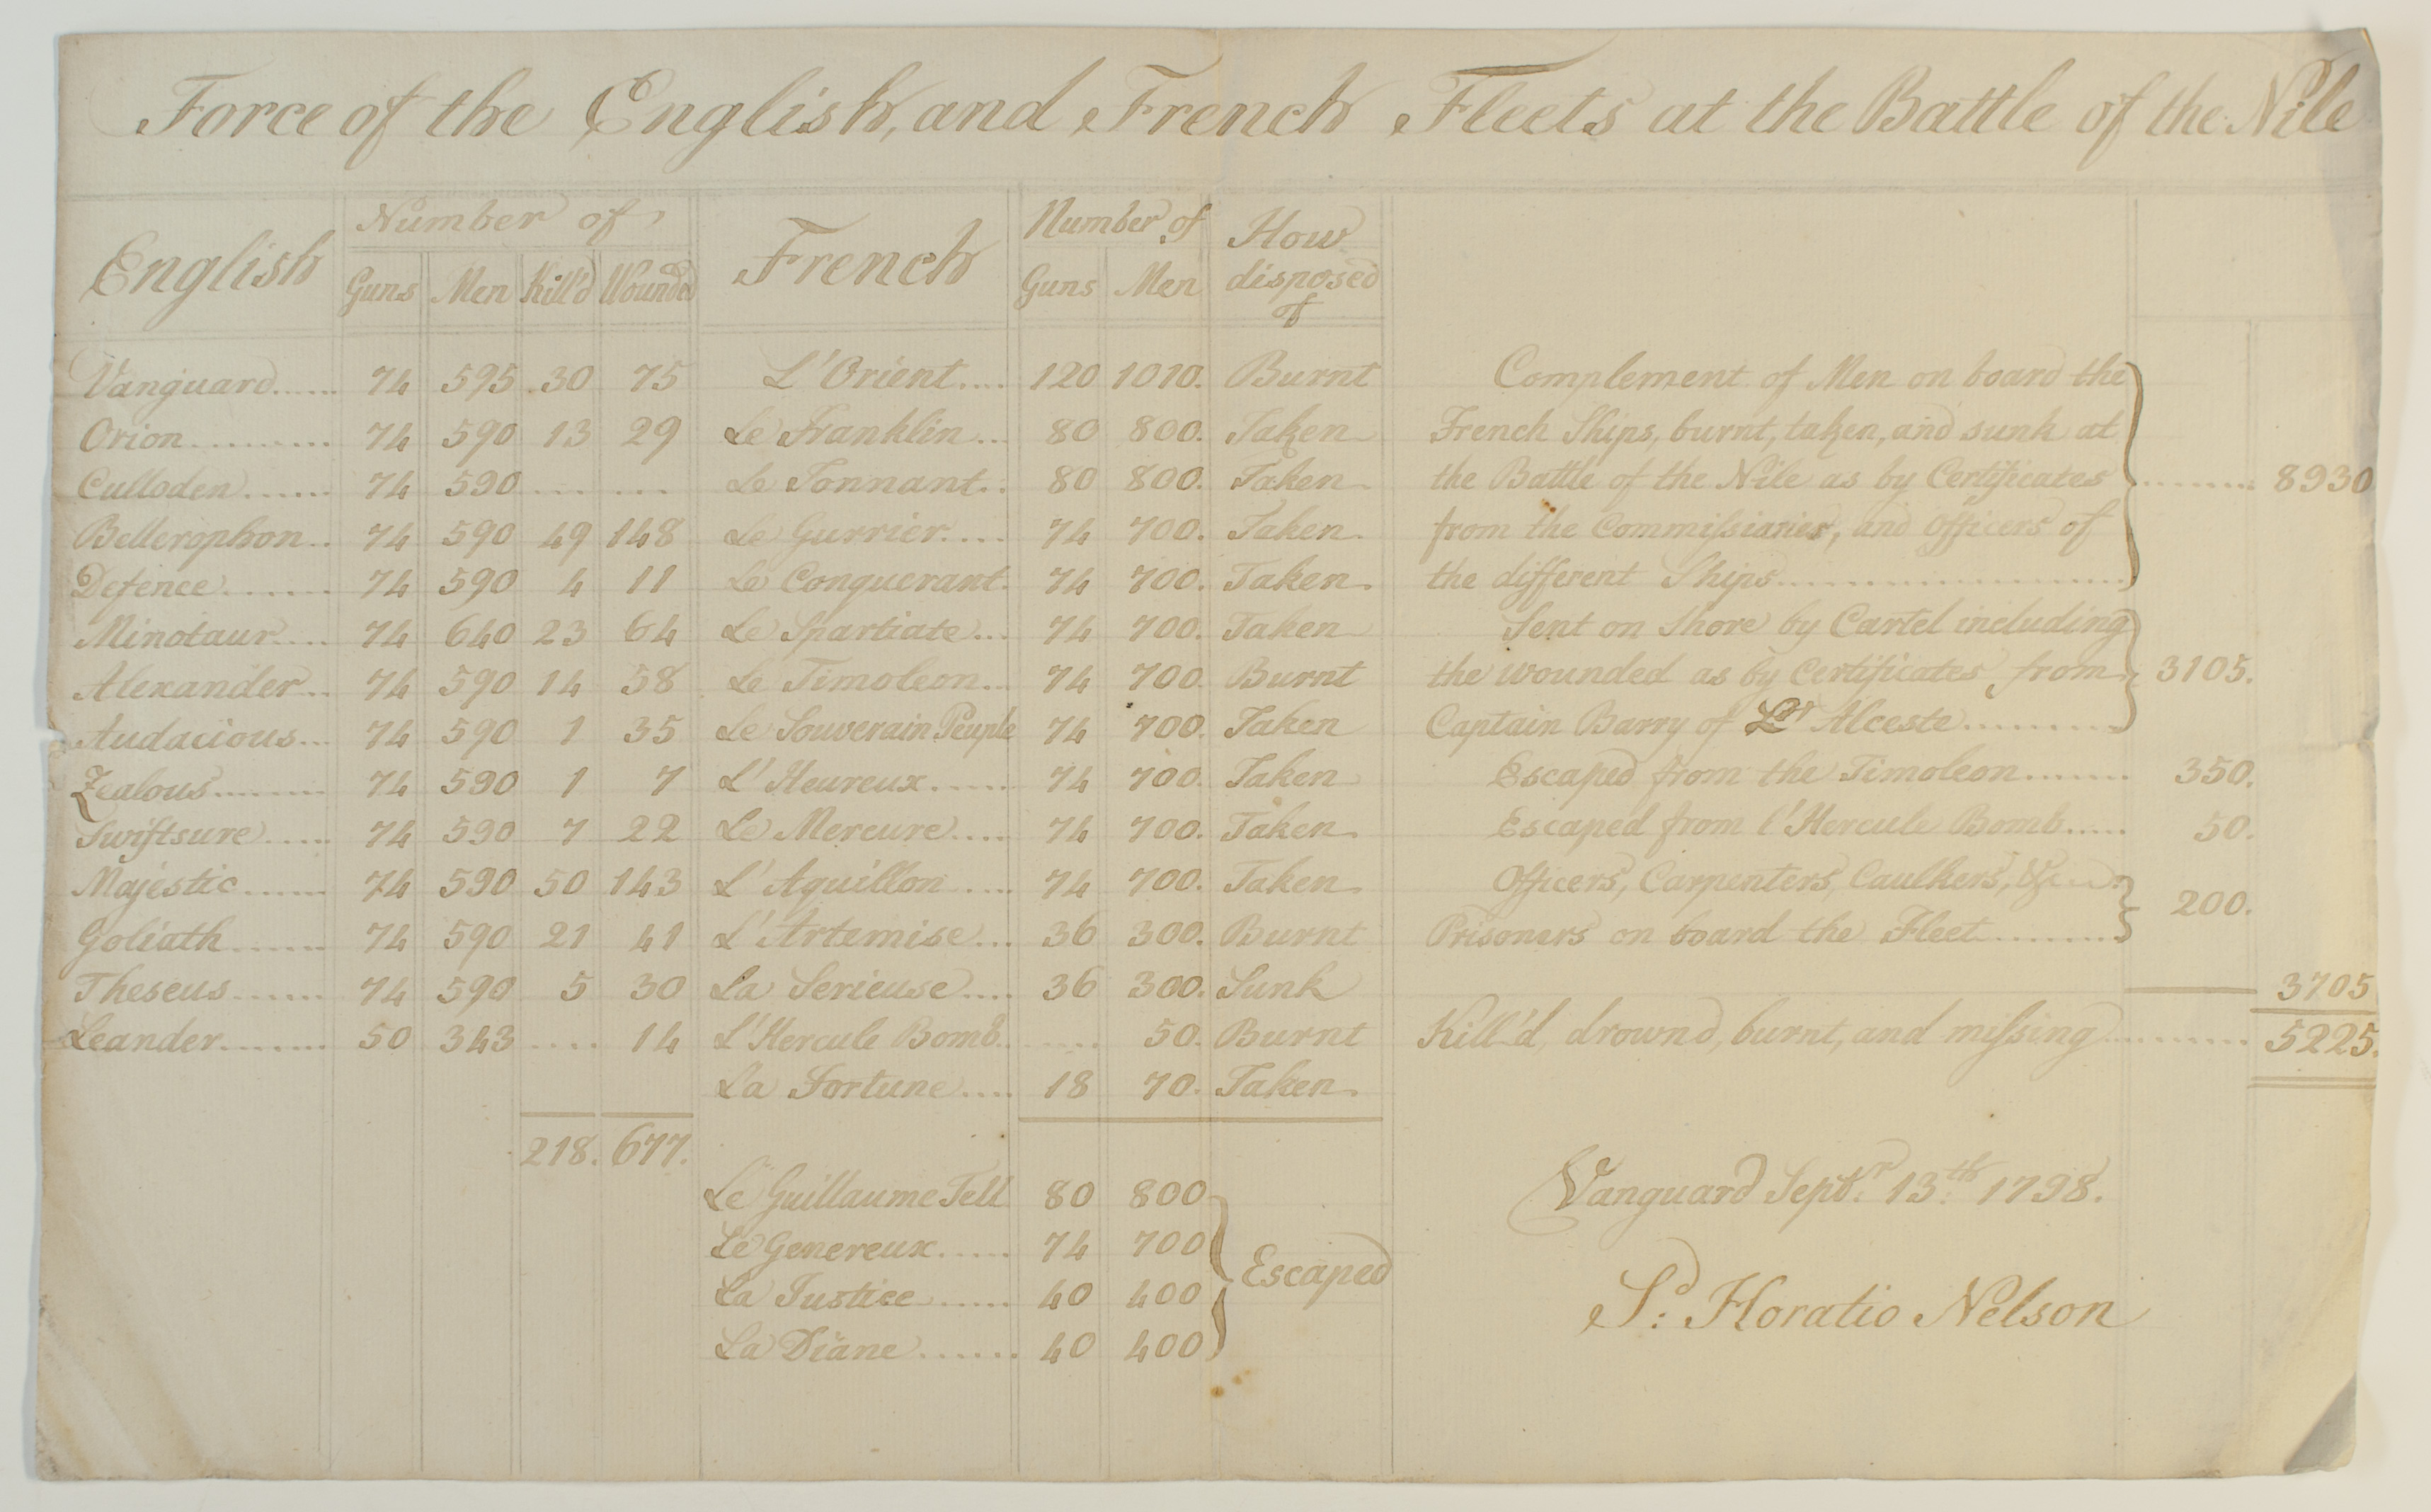 Force of the English, and French Fleets at the Battle of the Nile
English Number of French Number of How disposed of
Guns Men Kill'd Wounded Guns Men
Vanguard...... 74 595 30 75 L'Orient.... 120 1010. Burnt
Orion......... 74 590 13 29 Le Franklin... 80 800. Taken
Culloden...... 74 590 .... ... Le Tonnant.. 80 800. Taken
Bellerophon.. 74 590 49 148 Le Gurrier.... 74 700. Taken.
Defence....... 74 590 4 11 Le Conquerant. 74 700. Taken.
Minotaur.... 74 640 23 64 Le Spartiate... 74 700. Taken
Alexander.. 74 590 14 58 Le Timoleon... 74 700. Burnt
Audacious... 74 590 1 35 Le Souverain Peuple 74 700. Taken
Zealous....... 74 590 1 7 L'Heureux..... 74 700. Taken
Swiftsure..... 74 590 7 22 Le Mercure.... 74 700. Taken.
Majestic...... 74 590 50 143 L'Aquillon.... 74 700. Taken.
Goliath...... 74 590 21 41 L'Artemise... 36 300. Burnt
Theseus...... 74 590 5 30 La Serieuse.... 36 300. Sunk
Leander....... 50 343 .... 14 L'Hercule Bomb. .... 50. Burnt
La Fortune.... 18 70. Taken.
218. 677.
Le Guillaume Tell 80 800
Le Genereux..... 74 700
La Justice...... 40 400
La Diane...... 40 400
Escaped
Complement of Men on board the
French Ships, burnt, taken, and sunk at
the Battle of the Nile as by Certificates ........ 8930
from the Commissiaries, and Officers of
the different Ships....................
Sent on Shore by Cartel including
the wounded as by Certificates from 3105.
Captain Barry of Alceste.........
Escaped from the Timoleon....... 350.
Escaped from l'Hercule Bomb..... 50.
Officers, Carpenters, Caulkers, &c
Prisoners on board the Fleet........ 200.
3705
Kill'd, drownd, burnt, and missing......... 5225.
Vanguard Septr. 13th. 1798.
Sd: Horatio Nelson